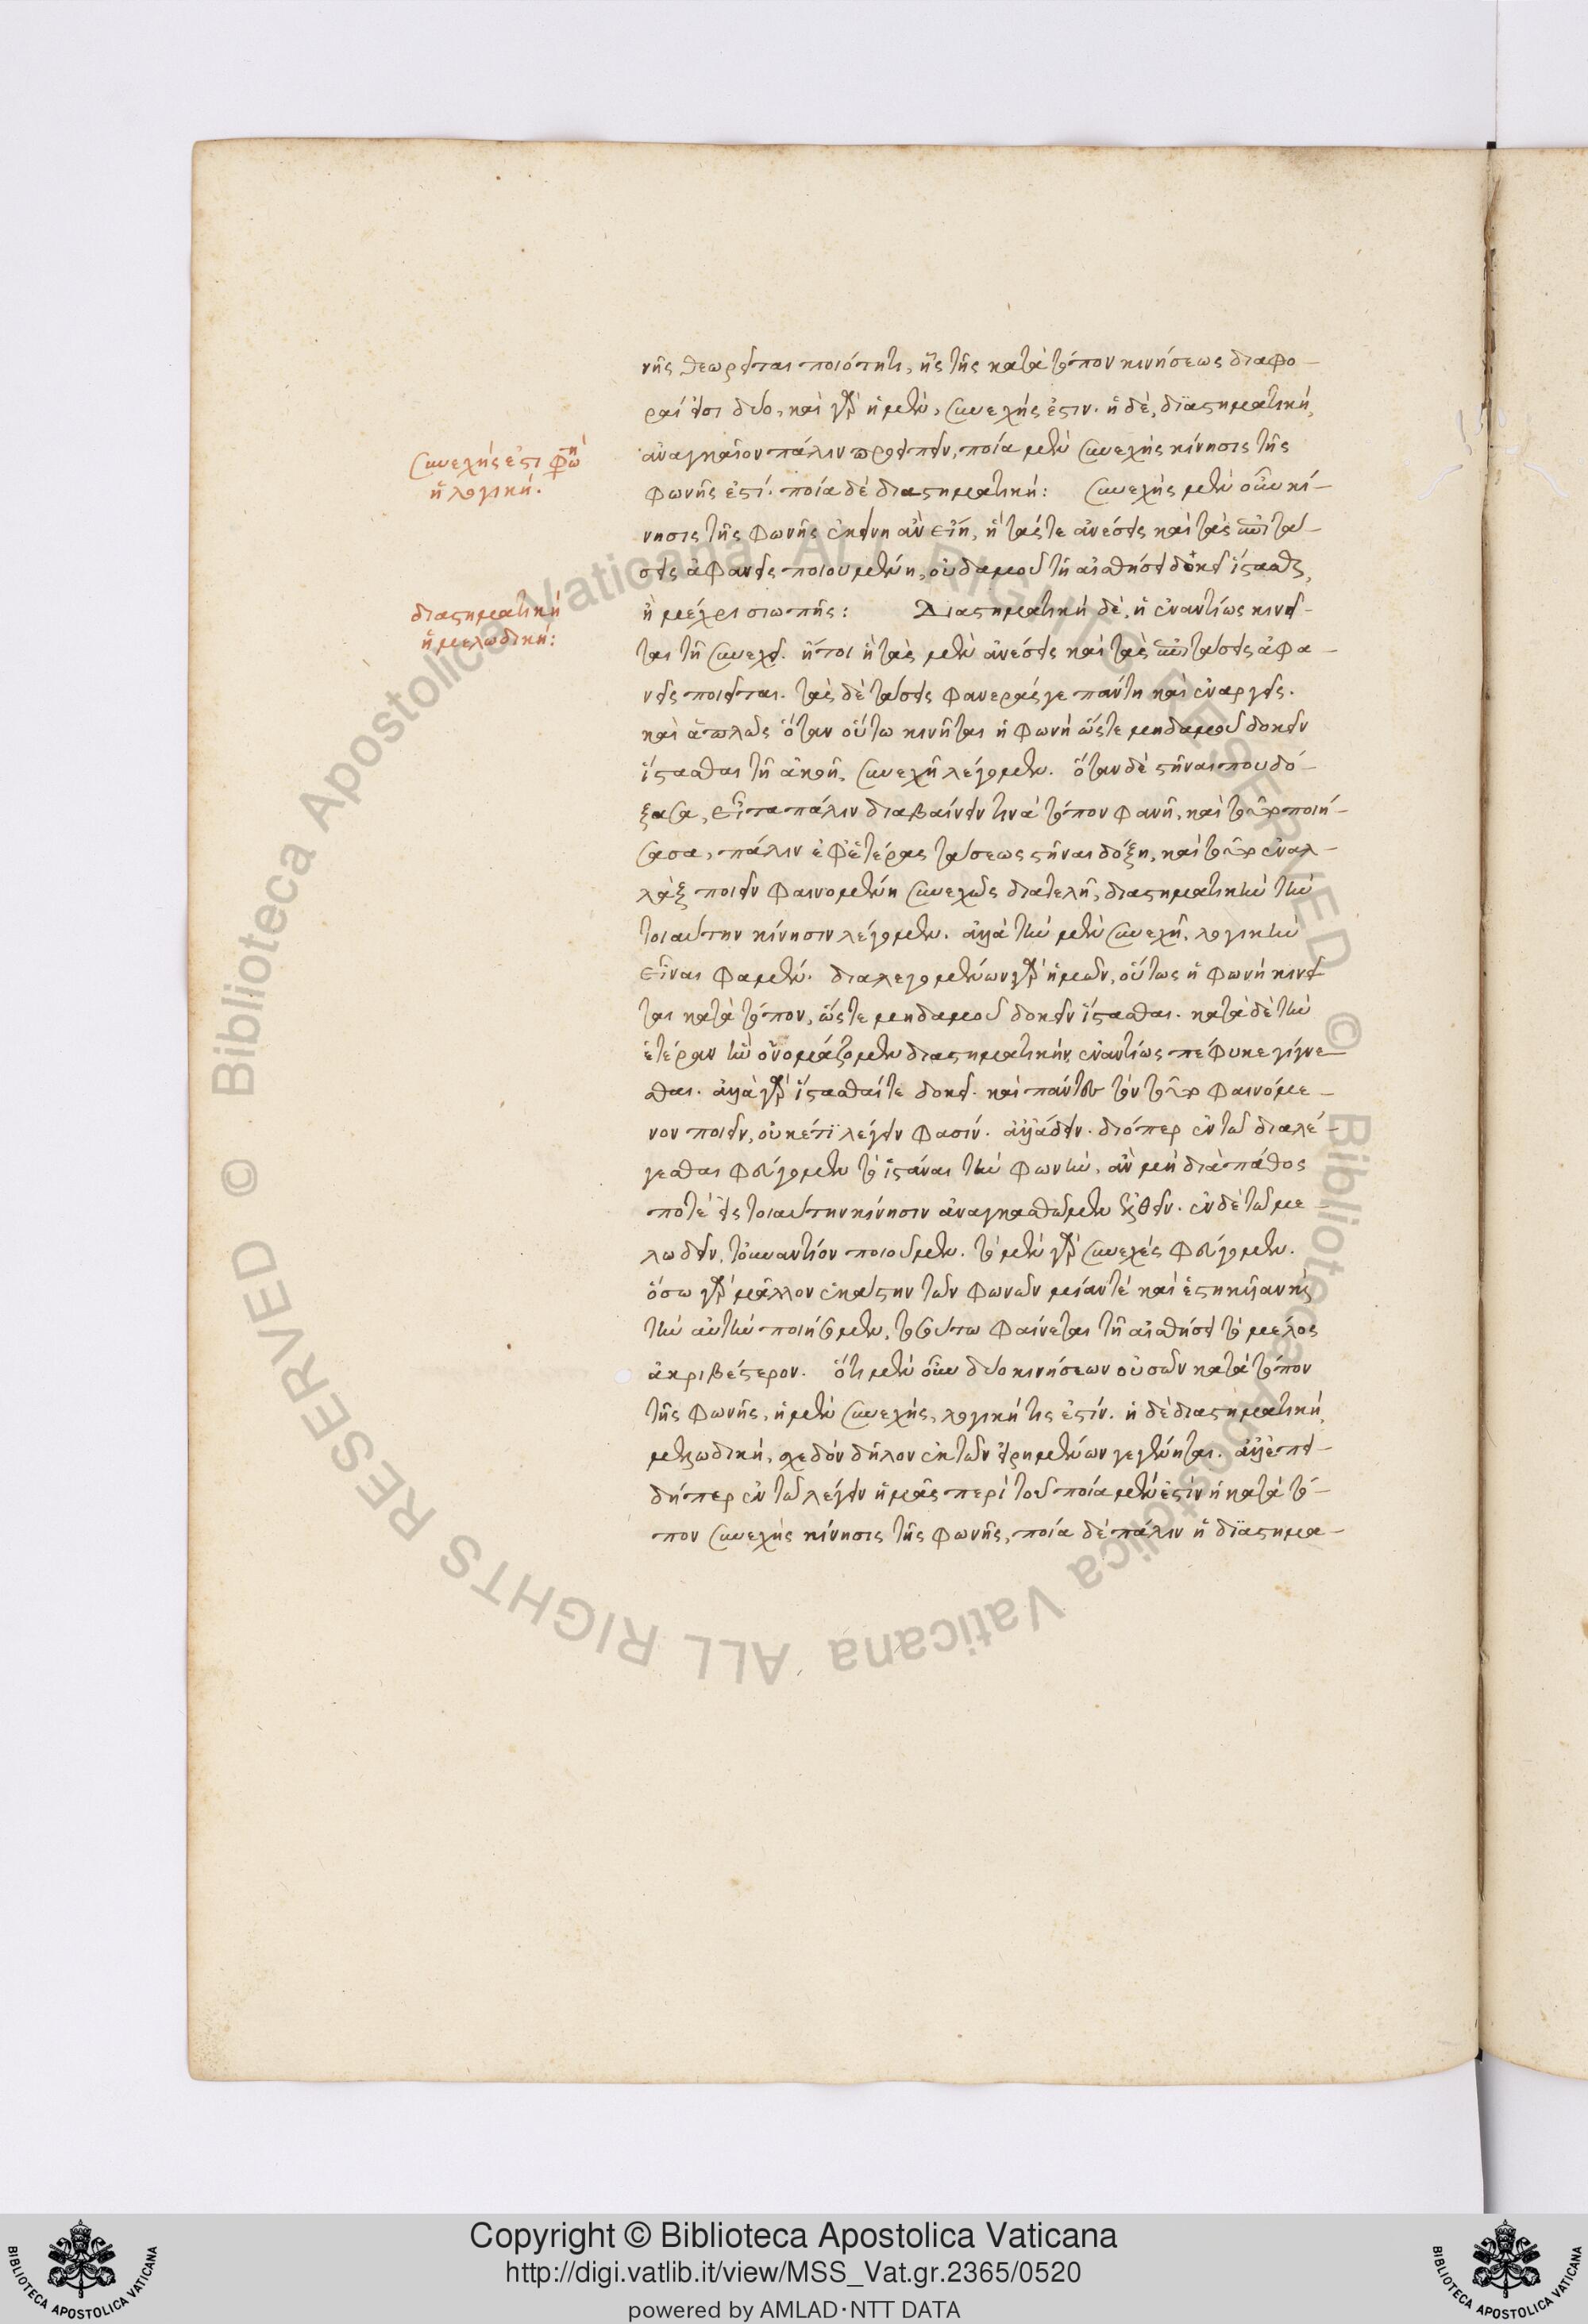 νῆς θεωρεῖται ποιότητι, ἧς τῆς κατὰ τόπον κινήσεως διαφο-
ραί εἰσι δύο, καὶ γὰρ ἡ μὲν, συνεχής ἐστιν. ἡ δὲ, διαστηματική,
ἀναγκαῖον πάλιν προειπεῖν, ποία μὲν συνεχὴς κίνησις τῆς
συνεχής ἐστι φωνὴ
ἡ λογική.
φωνῆς ἐστί. ποία δὲ διαστηματική: συνεχὴς μὲν οὖν κί-
νησις τῆς φωνῆς ἐκείνη ἂν εἴη, ἡ τάς τε ἀνέσεις καὶ τὰς ἐπιτά-
σεις ἀφανεῖς ποιουμένη, οὐδαμοῦ τῇ αἰσθήσει δοκεῖ ἵστασθαι,
διαστηματικὴ
ἡ μελωδική:
ἢ μέχρι σιωπῆς: Διαστηματικὴ δὲ, ἡ ἐναντίως κινεῖ-
ται τῇ συνεχεῖ. ἤτοι ἡ τὰς μὲν ἀνέσεις καὶ τὰς ἐπιτάσεις ἀφα-
νεῖς ποιεῖται. τὰς δὲ τάσεις φανεράς γε πάντη καὶ ἐναργεῖς.
καὶ ἁπλῶς ὅταν οὕτω κινῆται ἡ φωνὴ ὥστε μηδαμοῦ δοκεῖν
ἵστασθαι τῇ ἀκοῇ, συνεχῆ λέγομεν. ὅταν δὲ στῆναι που δό-
ξασα, εἶτα πάλιν διαβαίνειν τινὰ τόπον φανῇ, καὶ τοῦτο ποιή-
σασα, πάλιν ἐφ ἑτέρας τάσεως στῆναι δόξῃ, καὶ τοῦτο ἐναλ-
λὰξ ποιεῖν φαινομένη συνεχῶς διατελῇ, διαστηματικὴν τὴν
τοιαύτην κίνησιν λέγομεν. ἀλλὰ τὴν μὲν συνεχῆ, λογικὴν
εἶναι φαμέν. διαλεγομένων γὰρ ἡμῶν, οὕτως ἡ φωνὴ κινεῖ
ται κατὰ τόπον, ὥστε μηδαμοῦ δοκεῖν ἵστασθαι. κατὰ δὲ τὴν
ἑτέραν ἣν ὀνομάζομεν διαστηματικὴν, ἐναντίως πέφυκε γίγνε
σθαι. ἀλλὰ γὰρ ἵστασθαί τε δοκεῖ. καὶ πάντες τὸν τοῦτο φαινόμε-
νον ποιεῖν, οὐκέτι λέγειν φασίν. ἀλλ' ᾄδειν. διόπερ ἐν τῷ διαλέ-
γεσθαι φεύγομεν τὸ ἱστάναι τὴν φωνὴν, ἂν μὴ διὰ πάθος
ποτὲ εἰς τοιαύτην κίνησιν ἀναγκασθῶμεν ἐλθεῖν. ἐν δὲ τῷ με-
λωδεῖν, τοὐναντίον ποιοῦμεν. τὸ μὲν γὰρ συνεχὲς φεύγομεν.
ὅσω γὰρ μᾶλλον ἑκάστην τῶν φωνῶν μίαν τέ καὶ
τὴν αὐτὴν ποιήσομεν, τοσούτω φαίνεται τῇ αἰσθήσει τὸ μέλος
ἀκριβέστερον. ὅτι μὲν οὖν δύο κινήσεων οὐσῶν κατὰ τόπον
τῆς φωνῆς, ἡ μὲν συνεχὴς, λογική τις ἐστίν. ἡ δὲ διαστηματικὴ,
μελωδική, σχεδὸν δῆλον ἐκ τῶν εἰρημένων γεγένηται. ἀλλ' ἐπεὶ-
δήπερ ἐν τῷ λέγειν ἡμᾶς περὶ τοῦ ποία μέν ἐστιν ἡ κατὰ τό-
πον συνεχὴς κίνησις τῆς φωνῆς, ποία δὲ πάλιν ἡ διαστημα-
Copyright © Biblioteca Apostolica Vaticana
http://digi.vatlib.it/view/MSS_Vat.gr.2365/0520
powered by AMLAD·NTT DATA